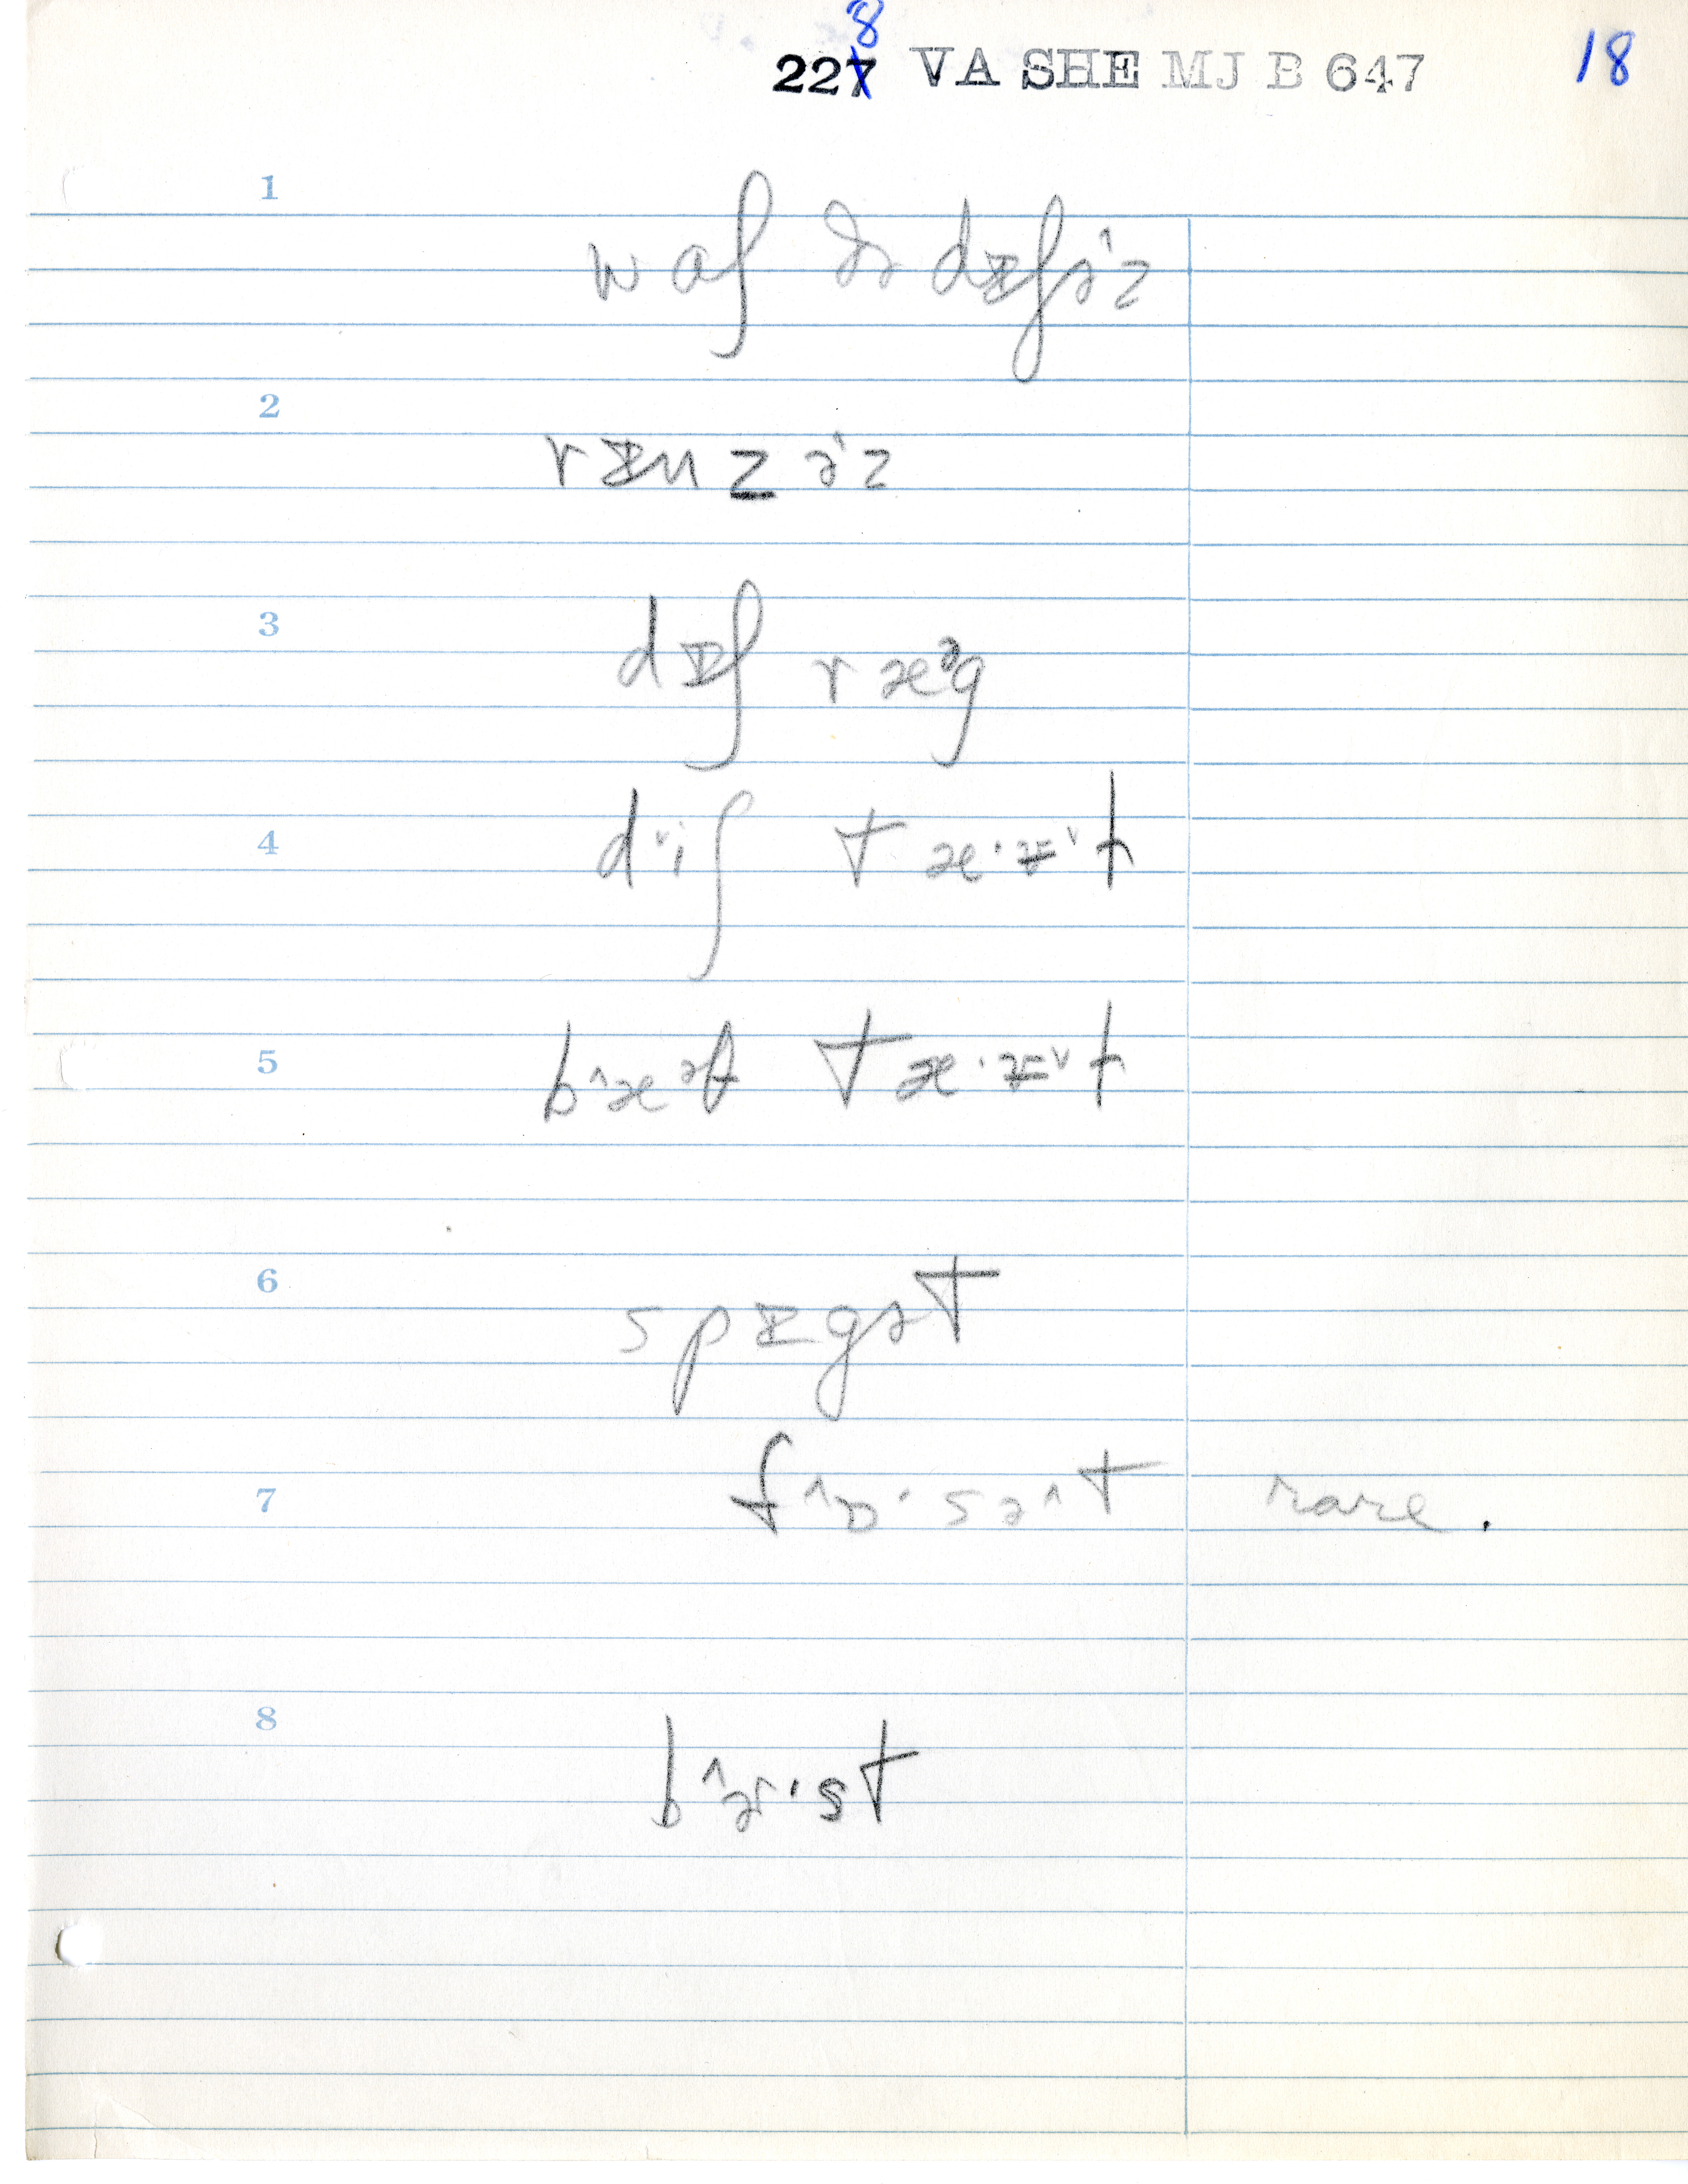 2278 VA SHE MJ B 647 18
1
waʃ ðə dɪʃə^z
2
rɪnzə^z
3
dɪʃ ræᵊg
4
dˇiʃ tæ·ɪˇt
5
b^æᵊθ tæ·ɪˇt
6
spɪgət
7
f^ɒ·sə^t rare.
8
b^ɚ·st